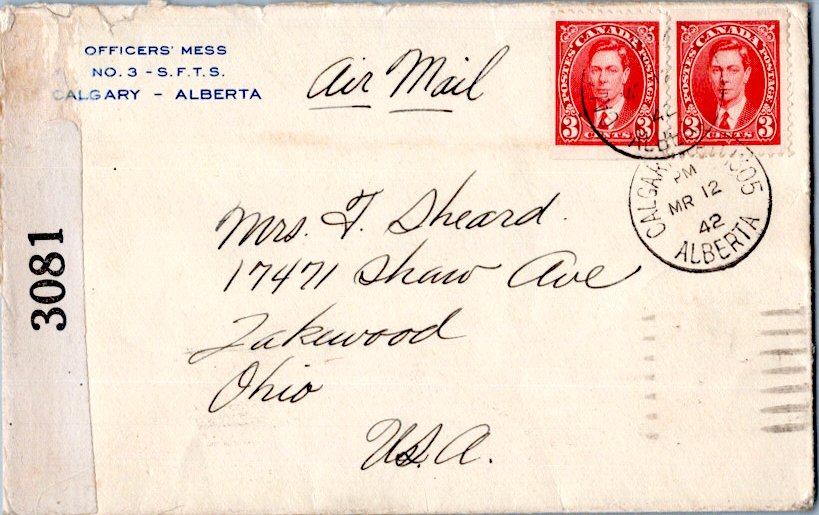 OFFICERS' MESS
NO. 3 - S.F.T.S.
CALGARY - ALBERTA
Air Mail
POSTES CANADA POSTAGE
3 CENTS 3
POSTES CANADA POSTAGE
3 CENTS 3
CALGARY 1005
PM
MR 12
42
ALBERTA
3081
Mrs. F. Sheard.
17471 Shaw Ave
Lakewood
Ohio
U.S.A.